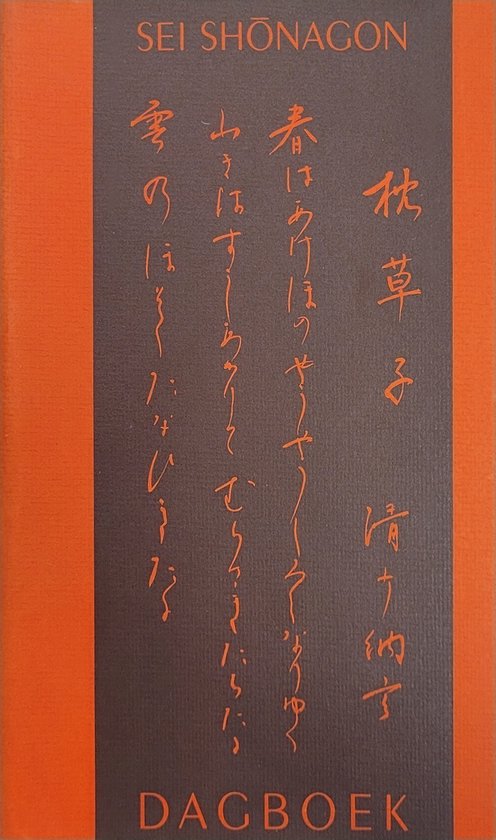 SEI SHŌNAGON
枕草子 清少納言
春はあけほのやうやうしろくなりゆく
山きはすこしあかりてむらさきたちたる
雲乃ほそくたなひきたる
DAGBOEK